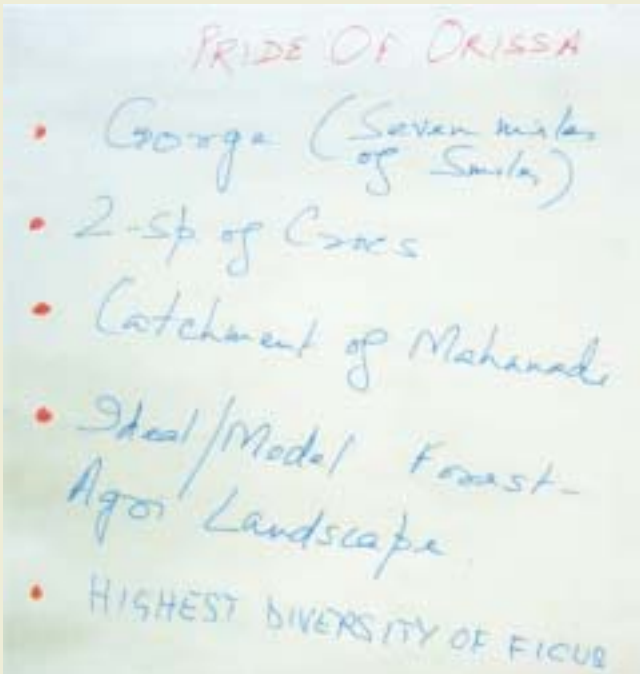 PRIDE OF ORISSA
• Gorge (Seven miles
of Smiles)
• 2-Sp of Crocs
• Catchment of Mahanadi
• Ideal/Model Forest-
Agri Landscape
• HIGHEST DIVERSITY OF FICUS